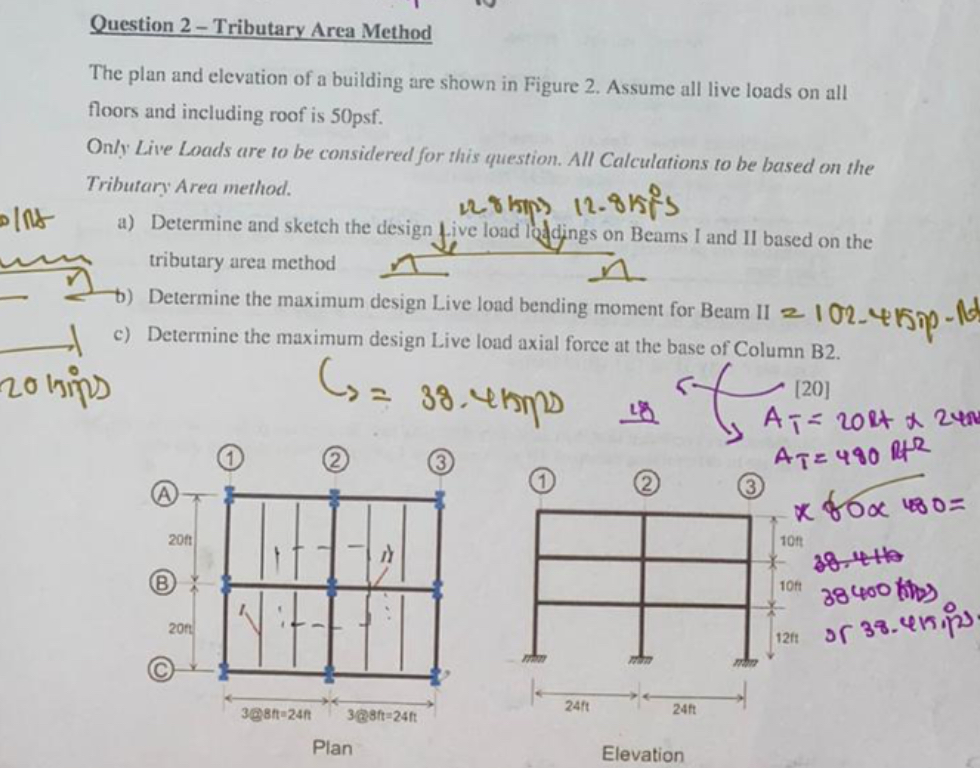 Question 2 – Tributary Area Method
The plan and elevation of a building are shown in Figure 2. Assume all live loads on all
floors and including roof is 50psf.
Only Live Loads are to be considered for this question. All Calculations to be based on the
Tributary Area method.
12.8 kips 12.8 kips
a) Determine and sketch the design Live load loadings on Beams I and II based on the
tributary area method
b) Determine the maximum design Live load bending moment for Beam II = 102.4 kip-
c) Determine the maximum design Live load axial force at the base of Column B2.
20 kips
= 38.4 kips
[20]
AT = 20ft x
AT = 480 ft2
x 80 x 480 =
38400
or 38.4 kips.
1 2 3
A
20ft
B
20ft
C
3@8ft=24ft 3@8ft=24ft
Plan
1 2 3
10ft
10ft
12ft
24ft 24ft
Elevation